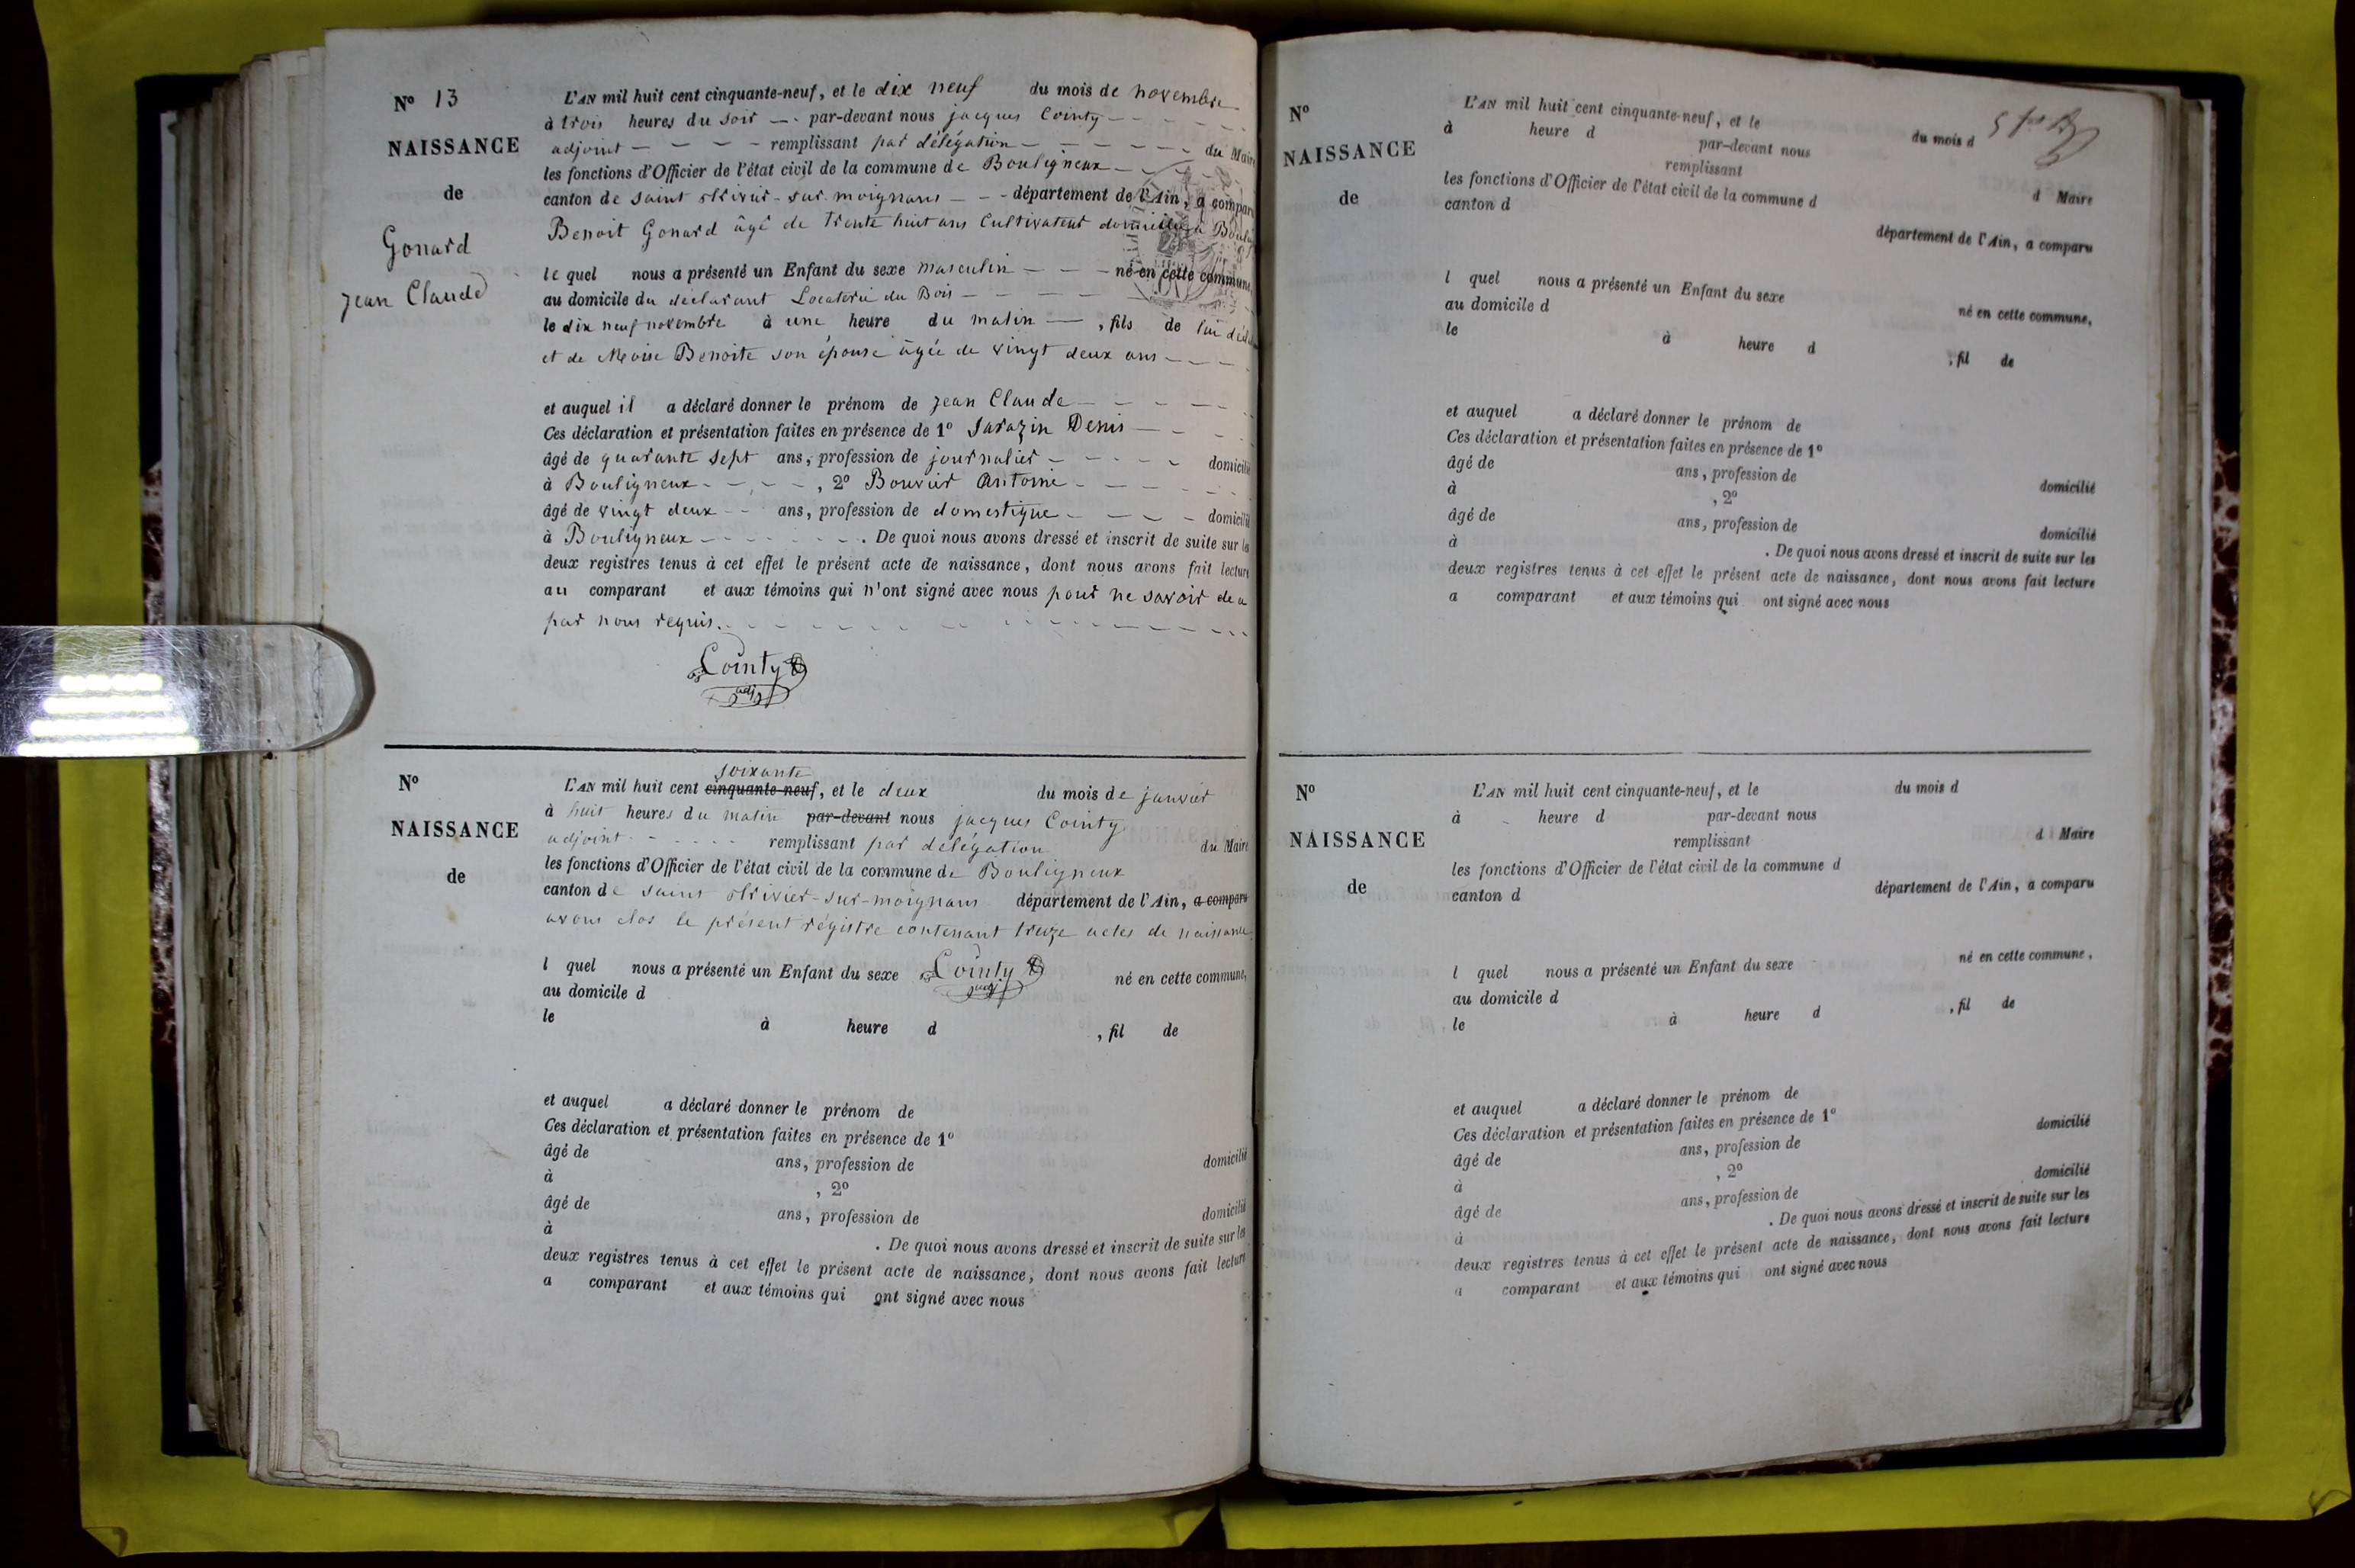 N° 13
NAISSANCE
de
Gonard
Jean Claude
L'AN mil huit cent cinquante-neuf, et le dix neuf du mois de novembre
à trois heures du soir — par-devant nous jacques Cointy
adjoint — — — — remplissant par délégation — — — — du Maire
les fonctions d'Officier de l'état civil de la commune de Bouligneux
canton de saint trivier-sur-moignans — — département de l'Ain, a comparu
Benoit Gonard âgé de trente huit ans Cultivateur domicilié à
le quel nous a présenté un Enfant du sexe masculin — — né en cette commune,
au domicile du déclarant Locaterie du Bois — — — —
le dix neuf novembre à une heure du matin — , fils de lui
et de Benoite son épouse âgée de vingt deux ans — — —
et auquel il a déclaré donner le prénom de jean Claude — — — —
Ces déclaration et présentation faites en présence de 1° Sarazin Denis — —
âgé de quarante sept ans, profession de journalier — — — — domicilié
à Bouligneux — — — — , 2° Bouvier Antoine — — — —
âgé de vingt deux — — ans, profession de domestique — — — — domicilié
à Bouligneux — — — — — — . De quoi nous avons dressé et inscrit de suite sur les
deux registres tenus à cet effet le présent acte de naissance, dont nous avons fait lecture
au comparant et aux témoins qui n'ont signé avec nous pour ne savoir de ce
par nous requis. — — — —
Cointy
adj
N°
NAISSANCE
de
soixante
L'AN mil huit cent cinquante-neuf, et le deux du mois de janvier
à huit heures du matin par-devant nous jacques Cointy
adjoint — — — — remplissant par délégation du Maire
les fonctions d'Officier de l'état civil de la commune de Bouligneux
canton de saint trivier-sur-moignans département de l'Ain, a comparu
avons clos le présent régistre contenant treize actes de naissance
l quel nous a présenté un Enfant du sexe Cointy né en cette commune,
adj
au domicile d
le à heure d , fil de
et auquel a déclaré donner le prénom de
Ces déclaration et présentation faites en présence de 1°
âgé de ans, profession de domicilié
à , 2°
âgé de ans, profession de domicilié
à . De quoi nous avons dressé et inscrit de suite sur les
deux registres tenus à cet effet le présent acte de naissance, dont nous avons fait lecture
a comparant et aux témoins qui ont signé avec nous
N°
NAISSANCE
de
L'AN mil huit cent cinquante-neuf, et le du mois d
à heure d par-devant nous
remplissant d Maire
les fonctions d'Officier de l'état civil de la commune d
canton d département de l'Ain, a comparu
l quel nous a présenté un Enfant du sexe né en cette commune,
au domicile d
le à heure d , fil de
et auquel a déclaré donner le prénom de
Ces déclaration et présentation faites en présence de 1°
âgé de ans, profession de domicilié
à , 2°
âgé de ans, profession de domicilié
à . De quoi nous avons dressé et inscrit de suite sur les
deux registres tenus à cet effet le présent acte de naissance, dont nous avons fait lecture
a comparant et aux témoins qui ont signé avec nous
N°
NAISSANCE
de
L'AN mil huit cent cinquante-neuf, et le du mois d
à heure d par-devant nous
remplissant d Maire
les fonctions d'Officier de l'état civil de la commune d
canton d département de l'Ain, a comparu
l quel nous a présenté un Enfant du sexe né en cette commune,
au domicile d
le à heure d , fil de
et auquel a déclaré donner le prénom de
Ces déclaration et présentation faites en présence de 1°
âgé de ans, profession de domicilié
à , 2°
âgé de ans, profession de domicilié
à . De quoi nous avons dressé et inscrit de suite sur les
deux registres tenus à cet effet le présent acte de naissance, dont nous avons fait lecture
a comparant et aux témoins qui ont signé avec nous